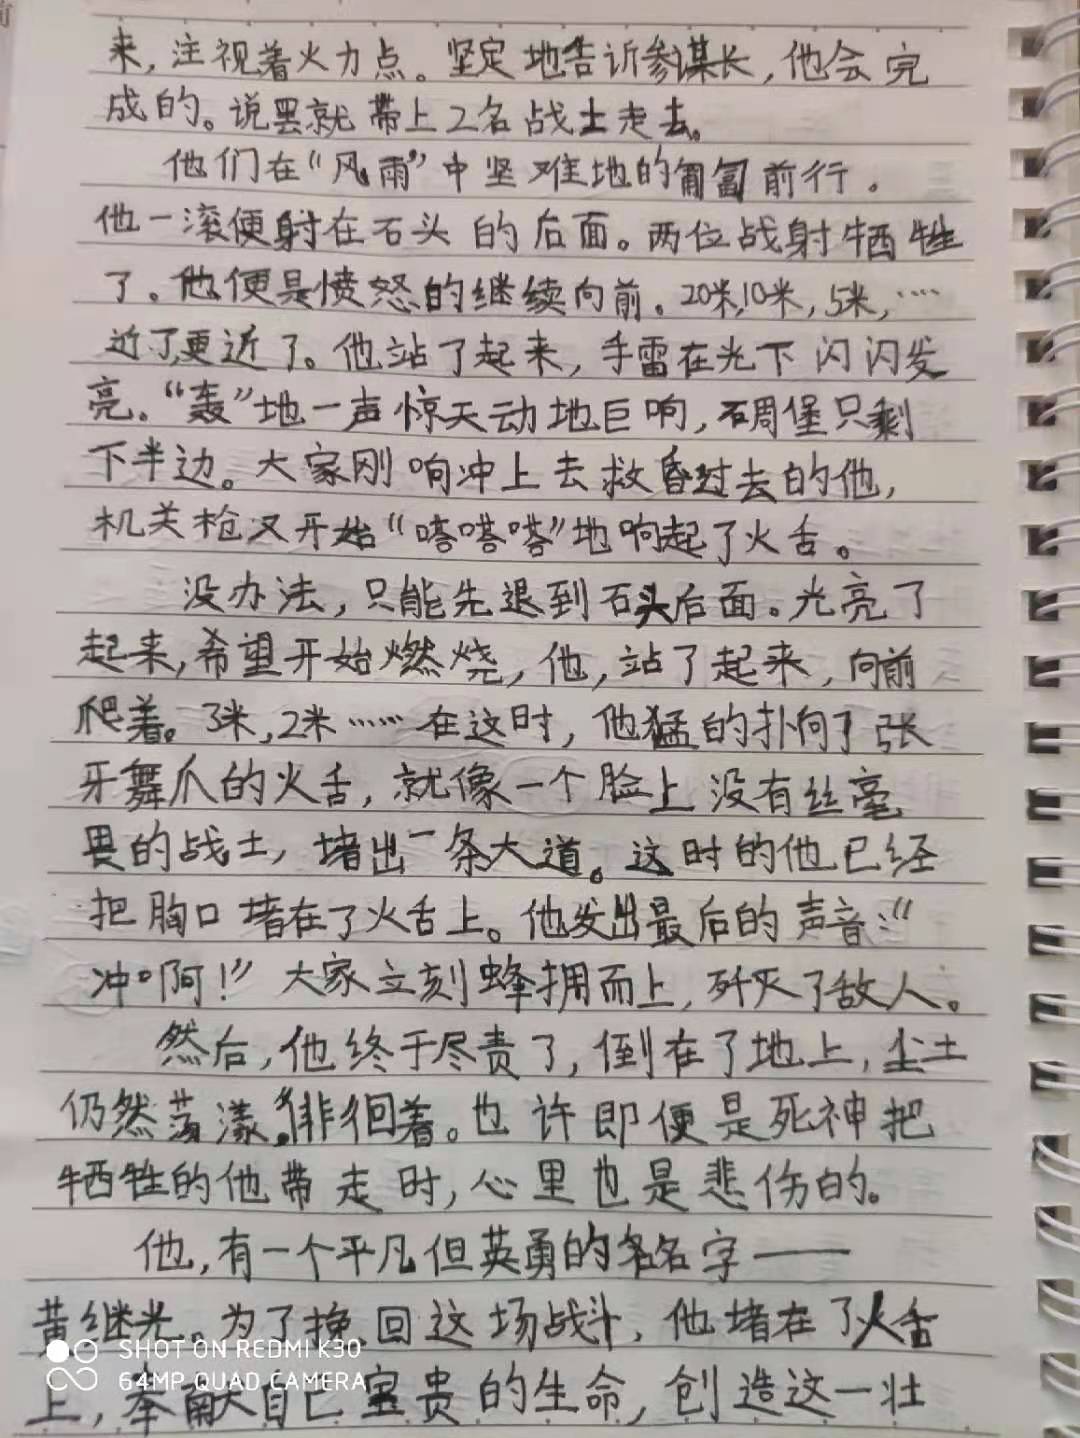 来，注视着火力点。坚定地告诉参谋长，他会完
成的。说罢就带上2名战士走去。
他们在“风雨”中坚难地的匍匐前行。
他一滚便射在石头的后面。两位战射牺牲
了。他便是愤怒的继续向前。20米，10米，5米，……
近了，更近了。他站了起来，手雷在光下闪闪发
亮。“轰”地一声惊天动地巨响，碉堡只剩
下半边。大家刚响冲上去救昏过去的他，
机关枪又开始“嗒嗒嗒”地响起了火舌。
没办法，只能先退到石头后面。光亮了
起来，希望开始燃烧，他，站了起来，向前
爬着。3米，2米……在这时，他猛的扑向了张
牙舞爪的火舌，就像一个脸上没有丝毫
畏的战士，堵出一条大道。这时的他已经
把胸口堵在了火舌上。他发出最后的声音：“
冲啊！”大家立刻蜂拥而上，歼灭了敌人。
然后，他终于尽责了，倒在了地上，尘土
仍然荡漾，徘徊着。也许即便是死神把
牺牲的他带走时，心里也是悲伤的。
他，有一个平凡但英勇的名字——
黄继光。为了挽回这场战斗，他堵在了火舌
SHOT ON REDMI K30
64MP QUAD CAMERA
上，奉献自己宝贵的生命，创造这一壮